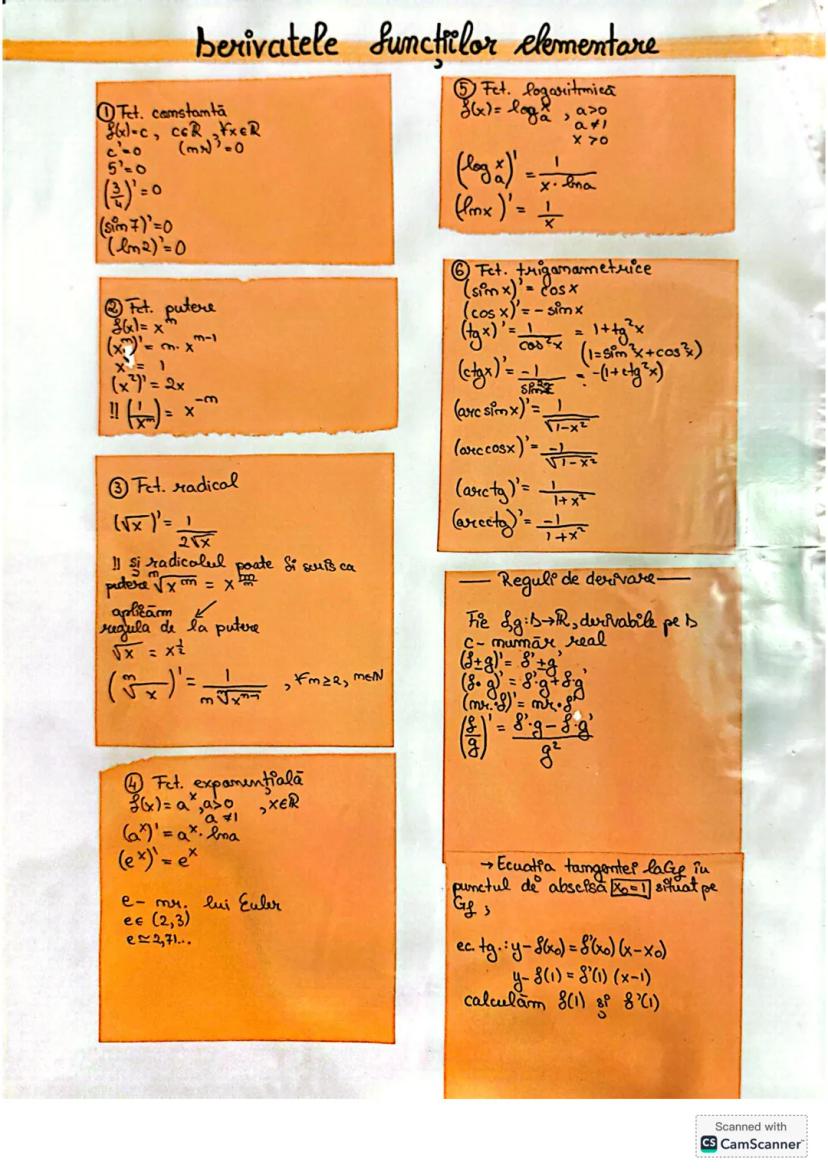 Derivatele funcțiilor elementare
① Fct. constantă
f(x)=c, c∈ℝ, ∀x∈ℝ
c'=0 (nr)'=0
5'=0
(3/4)'=0
(sin7)'=0
(ln2)'=0
② Fct. putere
f(x)= xⁿ
(xⁿ)'= n·xⁿ⁻¹
x' = 1
(x²)' = 2x
!! (1/xⁿ) = x⁻ⁿ
③ Fct. radical
(√x)' = 1/(2√x)
!! și radicalul poate fi scris ca
putere ⁿ√(x^m) = x^(m/n)
aplicăm ↙
regula de la putere
√x = x^(1/2)
(ⁿ√x)' = 1/(n ⁿ√(xⁿ⁻¹)) , ∀n≥2, n∈ℕ
④ Fct. exponențială
f(x)= aˣ, a>0 , x∈ℝ
a≠1
(aˣ)' = aˣ· lna
(eˣ)' = eˣ
e- nr. lui Euler
e∈ (2,3)
e≃2,71...
⑤ Fct. logaritmică
f(x)= logₐx , a>0
a≠1
x>0
(logₐx)' = 1/(x·lna)
(lnx)' = 1/x
⑥ Fct. trigonometrice
(sinx)' = cosx
(cosx)' = -sinx
(tgx)' = 1/cos²x = 1+tg²x
(1=sin²x+cos²x)
(ctgx)' = -1/sin²x = -(1+ctg²x)
(arcsinx)' = 1/√(1-x²)
(arccosx)' = -1/√(1-x²)
(arctg)' = 1/(1+x²)
(arcctg)' = -1/(1+x²)
— Reguli de derivare —
Fie f,g:D→ℝ, derivabile pe D
c- număr real
(f±g)' = f'±g'
(f·g)' = f'·g+f·g'
(nr.·f)' = nr.·f'
(f/g)' = (f'·g - f·g')/g²
→ Ecuația tangentei la Gf în
punctul de abscisă x₀=1 situat pe
Gf ;
ec. tg.: y-f(x₀)=f'(x₀)(x-x₀)
y-f(1)=f'(1)(x-1)
calculăm f(1) și f'(1)
Scanned with
CS CamScanner